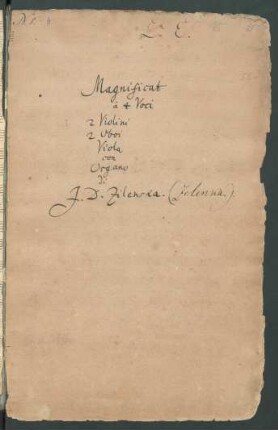 Magnificat
à 4 Voci
2 Violini
2 Oboi
Viola
con
Organo
J. D. Zilenka. (Zelenka.)